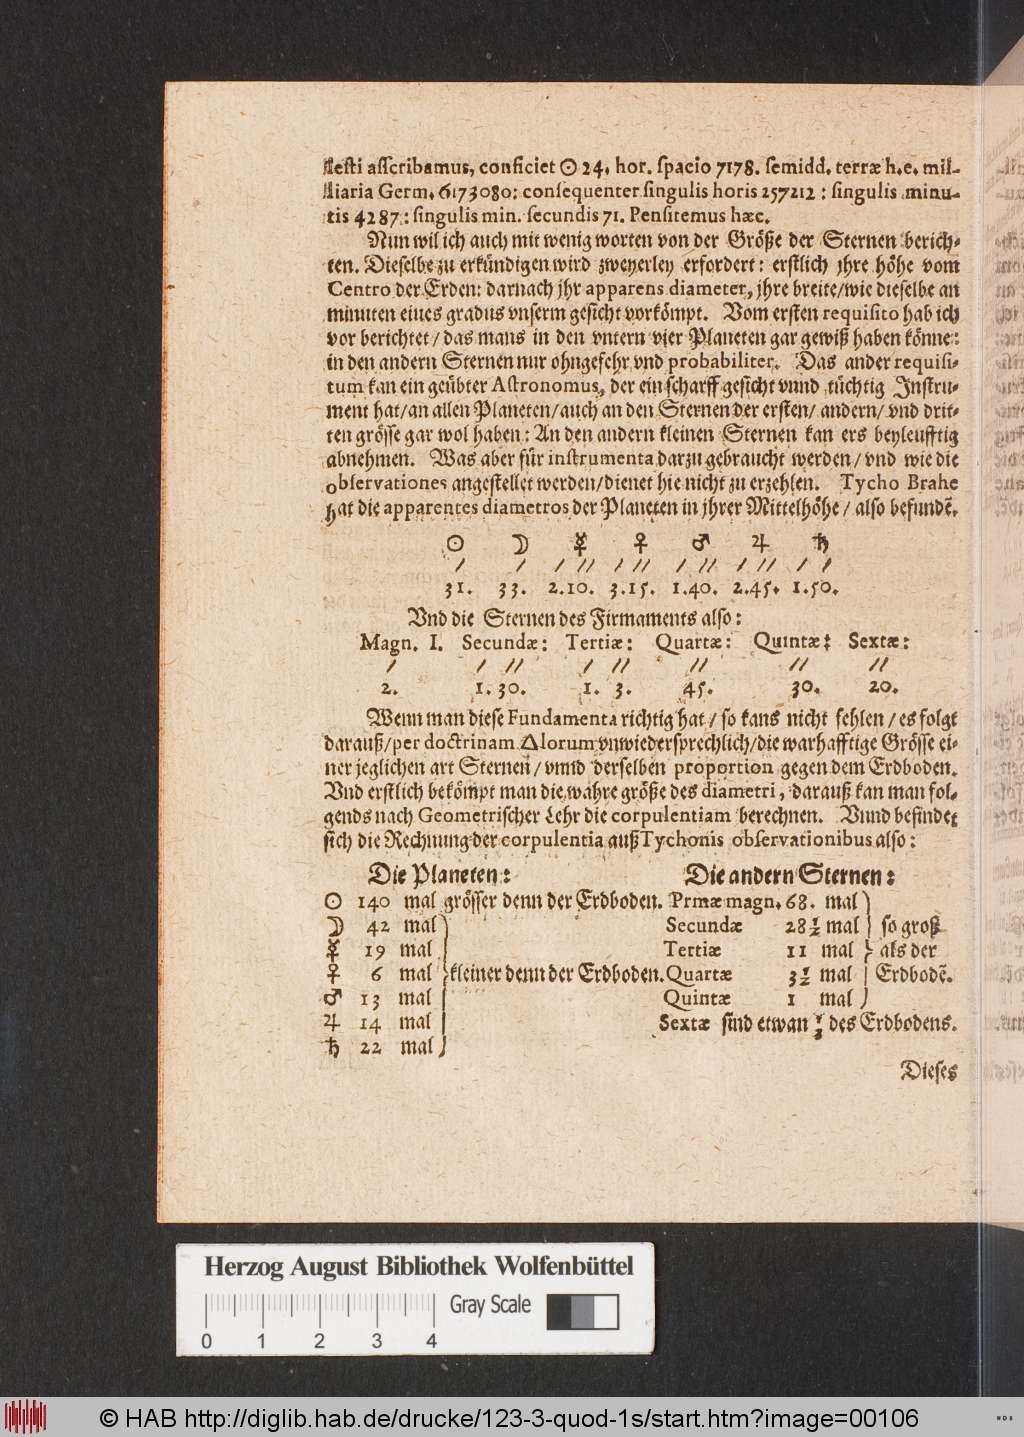 lesti asscribamus, conficiet ☉ 24. hor. spacio 7178. semidd. terræ h.e. mil-
liaria Germ. 6173080: consequenter singulis horis 257212 : singulis minu-
tis 4287: singulis min. secundis 71. Pensitemus hæc.
Nun wil ich auch mit wenig worten von der Größe der Sternen berich-
ten. Dieselbe zu erkündigen wird zweyerley erfordert: erstlich jhre höhe vom
Centro der Erden: darnach jhr apparens diameter, jhre breite/wie dieselbe an
minuten eines gradus vnserm gesicht vorkömpt. Vom ersten requisito hab ich
vor berichtet/das mans in den vntern vier Planeten gar gewiß haben könne:
in den andern Sternen nur ohngefehr vnd probabiliter. Das ander requisi-
tum kan ein geübter Astronomus, der ein scharff gesicht vnnd tüchtig Instru-
ment hat/an allen Planeten/auch an den Sternen der ersten/ andern/ vnd drit-
ten grösse gar wol haben: An den andern kleinen Sternen kan ers beyleufftig
abnehmen. Was aber für instrumenta darzu gebraucht werden/ vnd wie die
observationes angestellet werden/dienet hie nicht zu erzehlen. Tycho Brahe
hat die apparentes diametros der Planeten in jhrer Mittelhöhe/ also befundē.
☉ ☽ ☿ ♀ ♂ ♃ ♄
/ / / // / // / // / // / /
31. 33. 2.10. 3.15. 1.40. 2.45. 1.50.
Vnd die Sternen des Firmaments also:
Magn. I. Secundæ: Tertiæ: Quartæ: Quintæ: Sextæ:
/ / // / // // // //
2. 1.30. 1. 3. 45. 30. 20.
Wenn man diese Fundamenta richtig hat/ so kans nicht fehlen/ es folgt
darauß/per doctrinam Δlorum vnwiedersprechlich/die warhafftige Grösse ei-
ner jeglichen art Sternen/ vnnd derselben proportion gegen dem Erdboden.
Vnd erstlich bekömpt man die wahre größe des diametri, darauß kan man fol-
gends nach Geometrischer Lehr die corpulentiam berechnen. Vnnd befindet
sich die Rechnung der corpulentia auß Tychonis observationibus also:
Die Planeten: Die andern Sternen:
☉ 140 mal grösser denn der Erdboden. Prmæ magn. 68. mal
☽ 42 mal Secundæ 28½ mal so groß
☿ 19 mal Tertiæ 11 mal als der
♀ 6 mal kleiner denn der Erdboden. Quartæ 3½ mal Erdbodē.
♂ 13 mal Quintæ 1 mal
♃ 14 mal Sextæ sind etwan ⅓ des Erdbodens.
♄ 22 mal
Dieses
Herzog August Bibliothek Wolfenbüttel
Gray Scale
0 1 2 3 4
© HAB http://diglib.hab.de/drucke/123-3-quod-1s/start.htm?image=00106